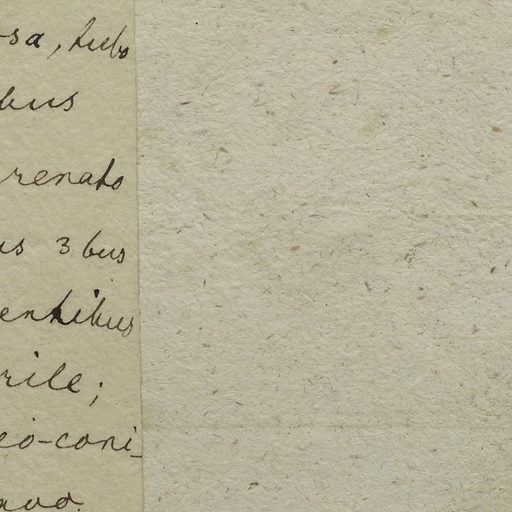 sa, tubo
bus
renato
us 3bus
entibus
rile;
eo-coni-
avo.